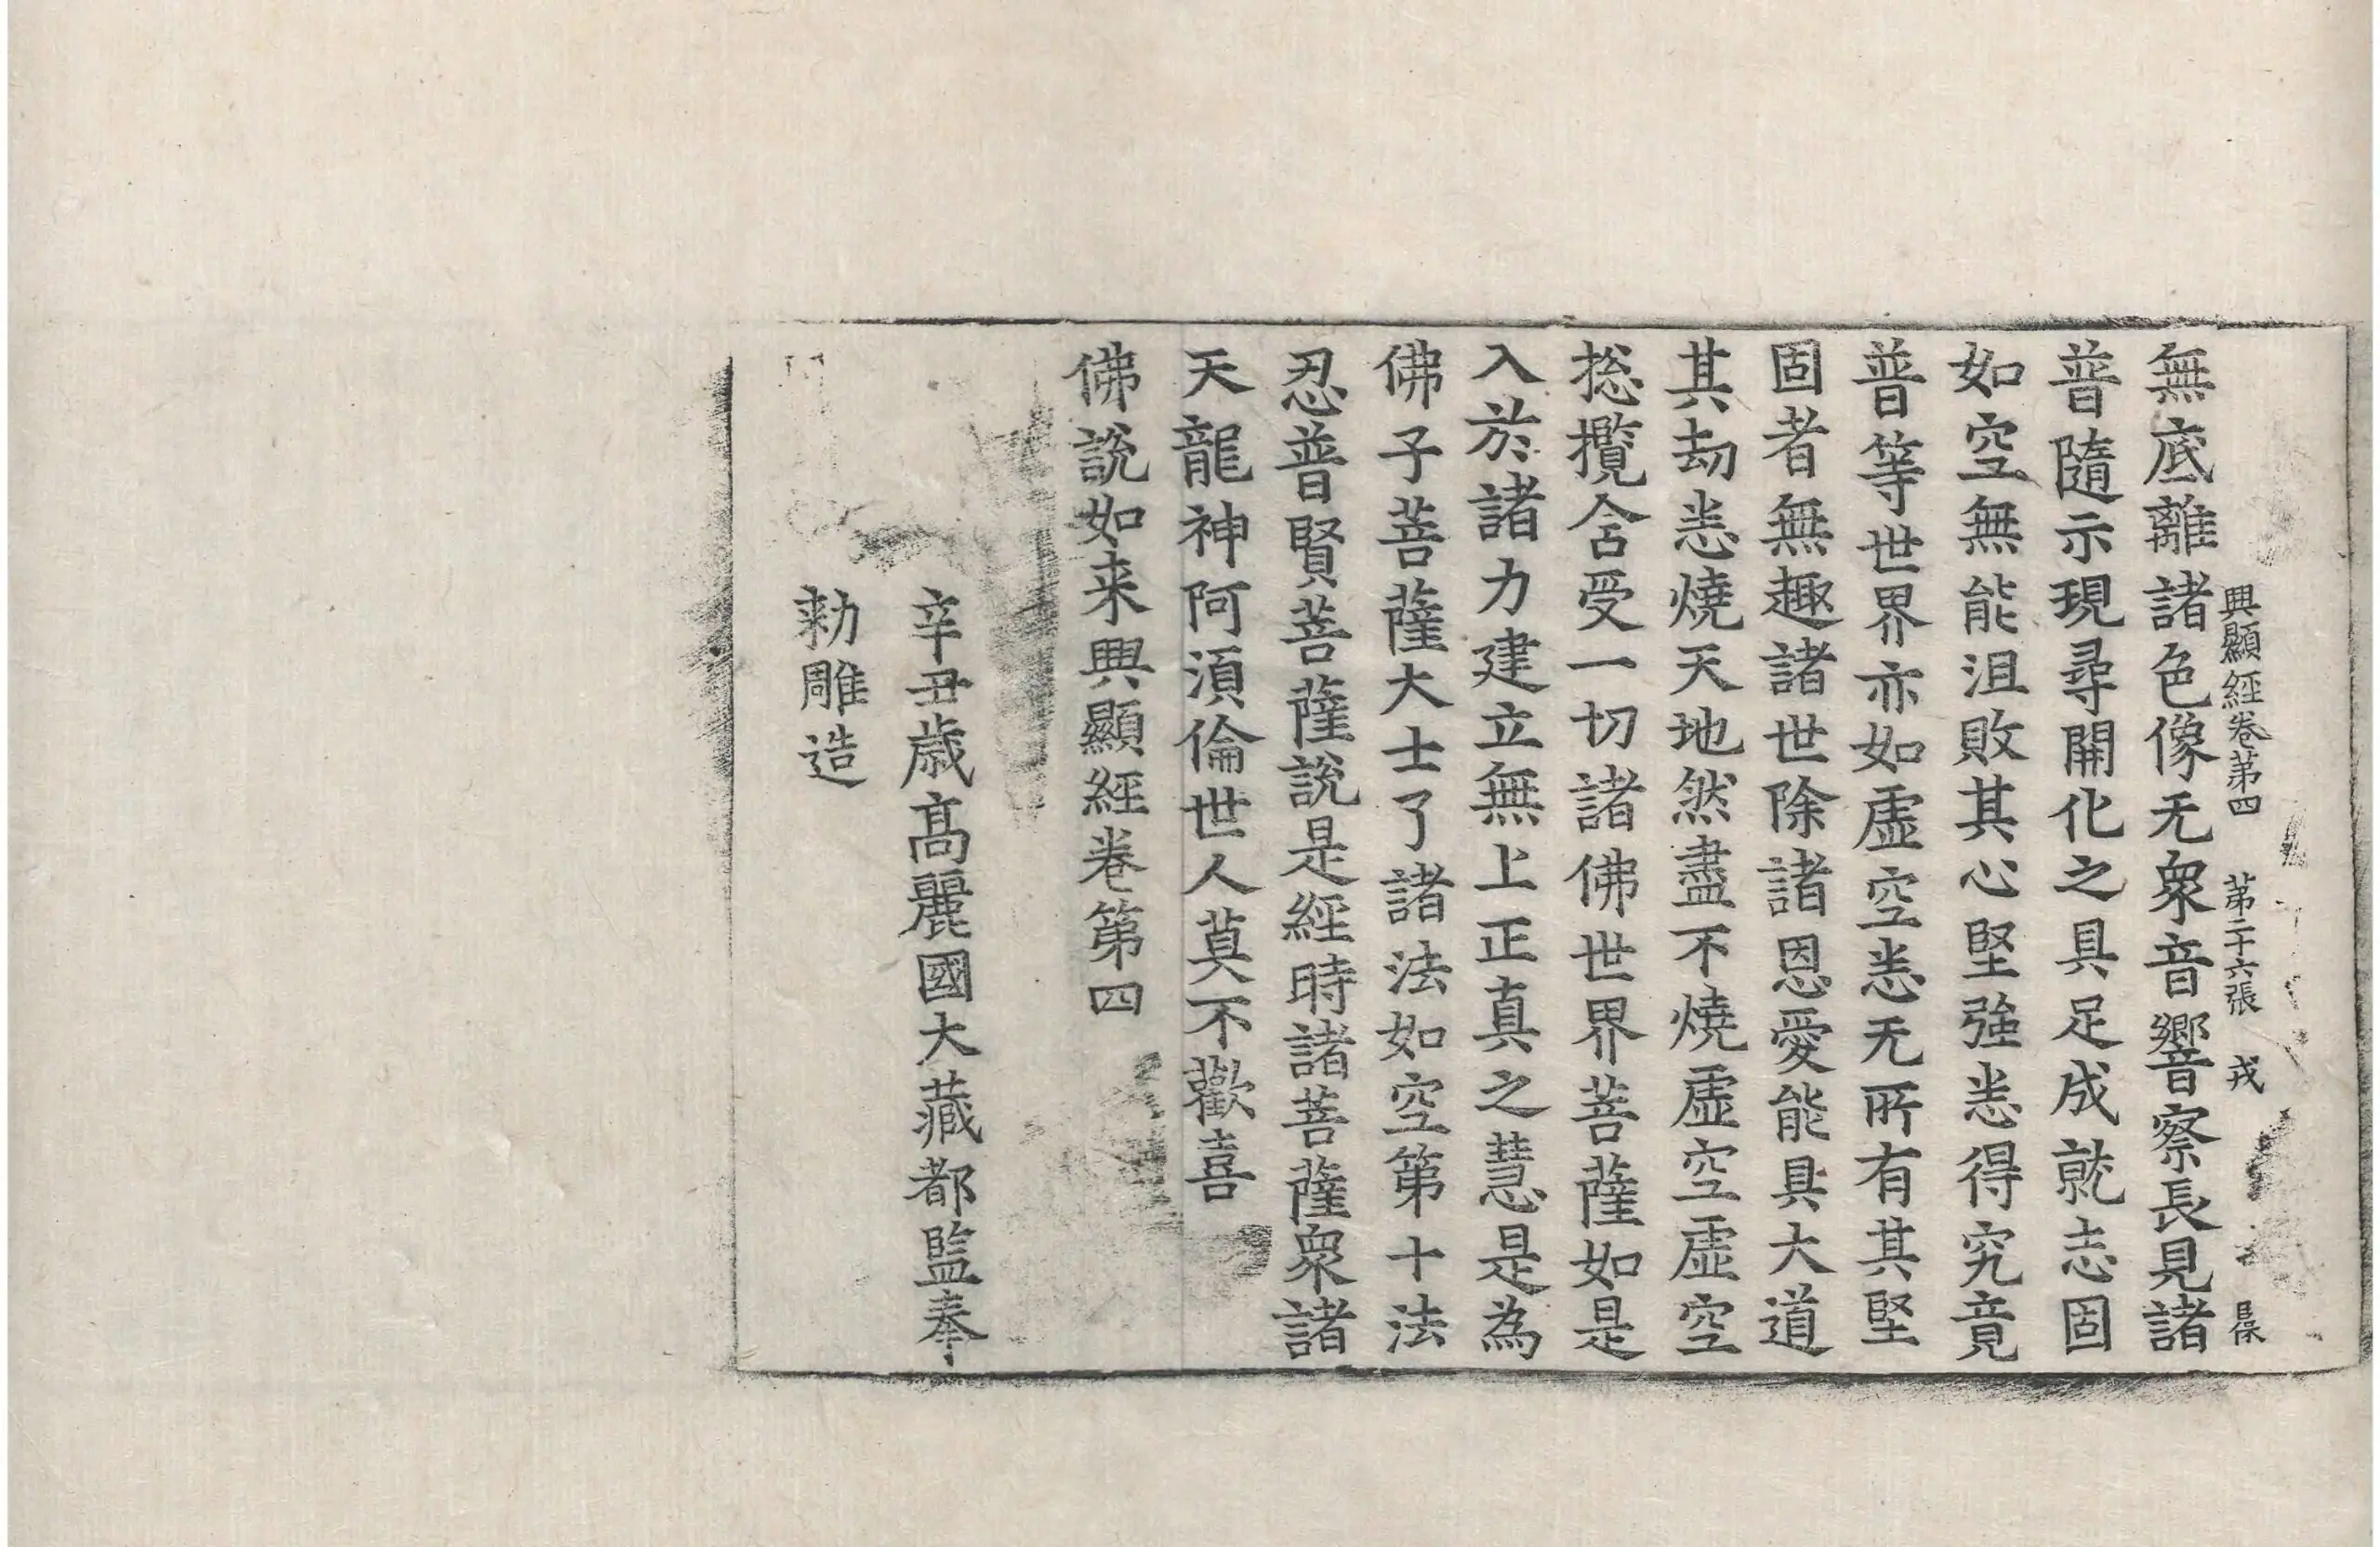 興顯經卷第四 第二十六張 戎 昌保
無底離諸色像无衆音響察長見諸
普隨示現尋開化之具足成就志固
如空無能沮敗其心堅強恙得究竟
普等世界亦如虛空恙无所有其堅
固者無趣諸世除諸恩愛能具大道
其劫恙燒天地然盡不燒虛空虛空
捴攬含受一切諸佛世界菩薩如是
入於諸力建立無上正真之慧是為
佛子菩薩大士了諸法如空第十法
忍普賢菩薩說是經時諸菩薩衆諸
天龍神阿湏倫世人莫不歡喜
佛說如来興顯經卷第四
辛丑歳髙麗國大藏都監奉
勑雕造